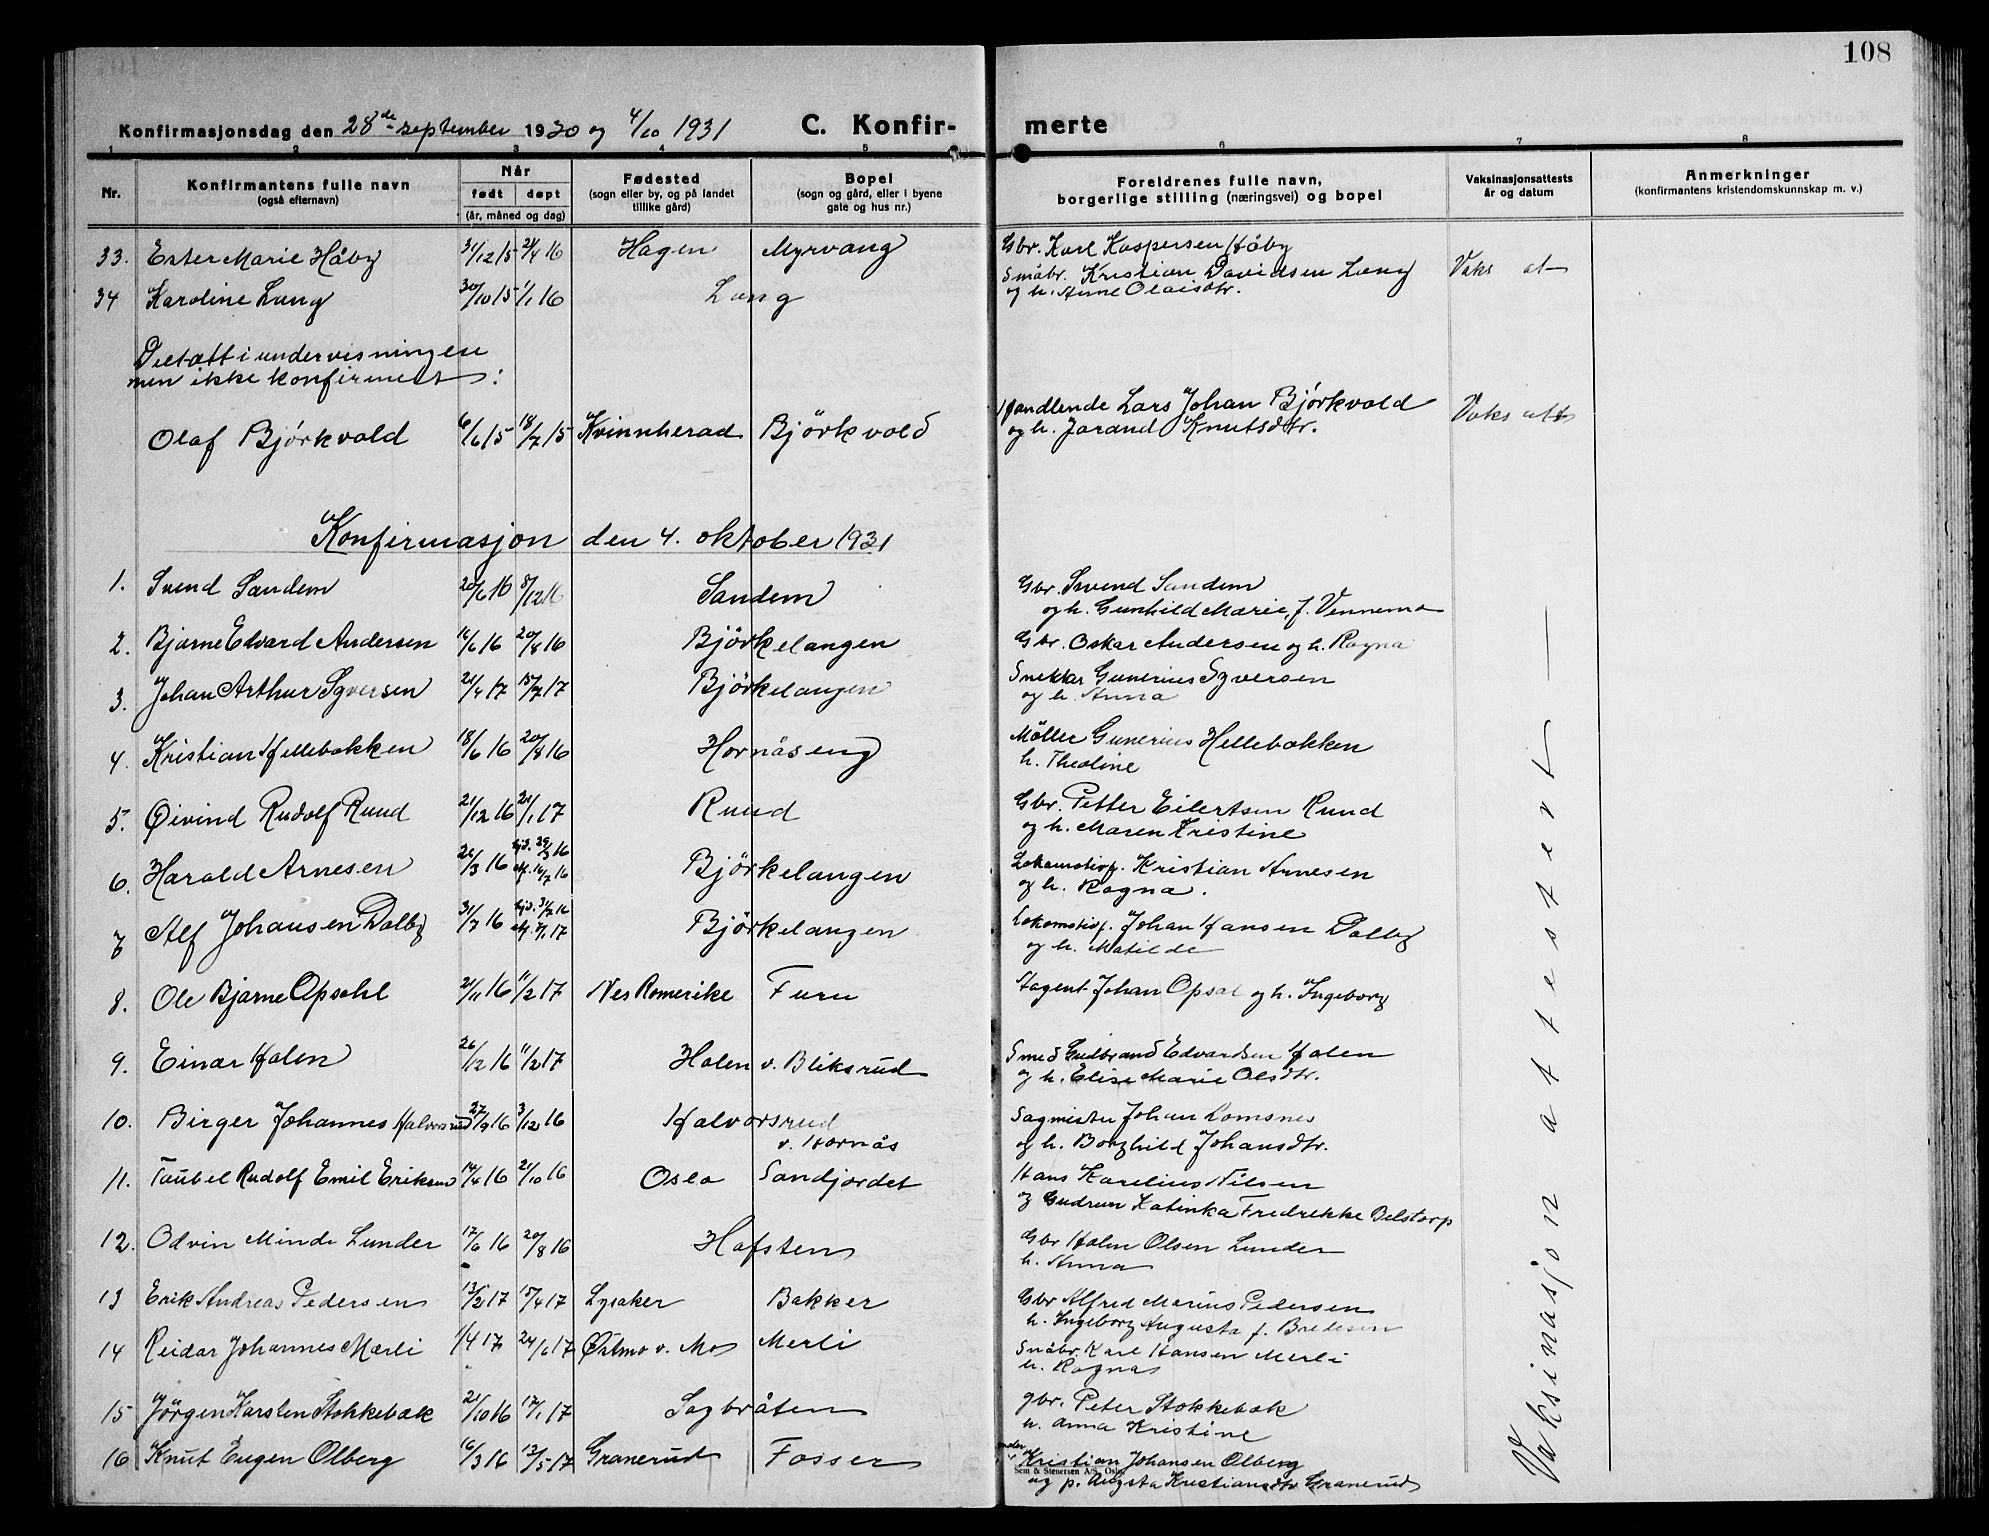 108
Konfirmasjonsdag den 28de september 1930 og 4/10 1931 C. Konfir- merte
1 2 3 4 5 6 7 8
Nr. Konfirmantens fulle navn (også efternavn) Når født døpt (år, måned og dag) Fødested (sogn eller by, og på landet tillike gård) Bopel (sogn og gård, eller i byene gate og hus nr.) Foreldrenes fulle navn, borgerlige stilling (næringsvei) og bopel Vaksinasjonsattests år og datum Anmerkninger (konfirmantens kristendomskunnskap m. v.)
33. Ester Marie Håby 31/12 15 24/4 16 Hagen Myrvang Gbr. Karl Kaspersen Håby
34 Karoline Lang 30/10 15 1/1 16 Lang Småbr. Kristian Davidsen Lang Vaks at
og h. Anne Olaisdtr.
Deltatt i undervisningen
men ikke konfirmert:
Olaf Björkvold 6/6 15 18/7 15 Kvinnherad Björkvold Handlende Lars Johan Björkvold Vaks att
og h. Jorand Knutsdtr.
Konfirmasjon den 4. oktober 1931
1. Svend Sandem 20/6 16 8/12 16 Sandem Gbr. Svend Sandem
og h. Gunhild Marie, f. Vennemo
2. Bjarne Edvard Andersen 16/6 16 20/8 16 Björkelangen Gbr. Oskar Andersen og h. Ragna
3. Johan Arthur Syversen 21/4 17 15/7 17 Björkelangen Snekker Gunerius Syversen
og h. Anna
4. Kristian Hellebakken 18/6 16 20/8 16 Hornåseng Möller Gunerius Hellebakken
h. Theoline
5. Øivind Rudolf Ruud 21/12 16 21/1 17 Ruud Gbr. Petter Eilertsen Ruud
og h. Maren Kristine
6. Harald Arnesen 26/3 16 hjd. 29/3 16 16/7 16 Björkelangen Lokomotivf. Kristian Arnesen
og h. Ragna.
7 Alf Johansen Dalby 31/7 16 hjd. 31/7 16 17 Björkelangen Lokomotivf. Johan Hansen Dalby
og h. Matilde
8. Ole Bjarne Opsahl 21/11 16 11/2 17 Nes Romerike Furu Johan Opsal og h. Ingeborg
9. Einar Holen 26/12 16 11/2 17 Holen v. Bliksrud Smed Gudbrand Edvardsen Holen
og h. Elise Marie Olsdtr.
10. Birger Johannes Halvorsrud 27/9 16 3/12 16 Halvorsrud v. Hornås Sagmester Johan Romsnes
og h. Borghild Johansdtr.
11. Taubel Rudolf Emil Eriksen 14/4 16 21/10 16 Oslo Sandjordet Hans Karelius Nilsen
og Gudrun Katinka Fredrekke Belstorp
12. Odvin Minde Lunder 17/6 16 20/8 16 Hofsten Gbr Halen Olsen Lunder
h. Anna
13 Erik Andreas Pedersen 13/2 17 15/4 17 Lysaker Bakker Gbr Alfred Marius Pedersen
h. Ingeborg Augusta f. Bredesen
14 Reidar Johannes Mærli 1/4 17 24/6 17 Østmo v. Mo Merli Småbr. Karl Hansen Merli
h. Ragna
15 Jörgen Karsten Stokkebæk 21/10 16 17/1 17 Sagbråten gbr. Peter Stokkebæk
h. Anna Kristine
16 Knut Eugen Olberg 16/3 16 13/5 17 Granerud Fosser Kristian Johansen Olberg
Sem & Stenersen A/S, Oslo.
og p. Augsta Kristiansdtr Granerud
Vaksinasjon attestert